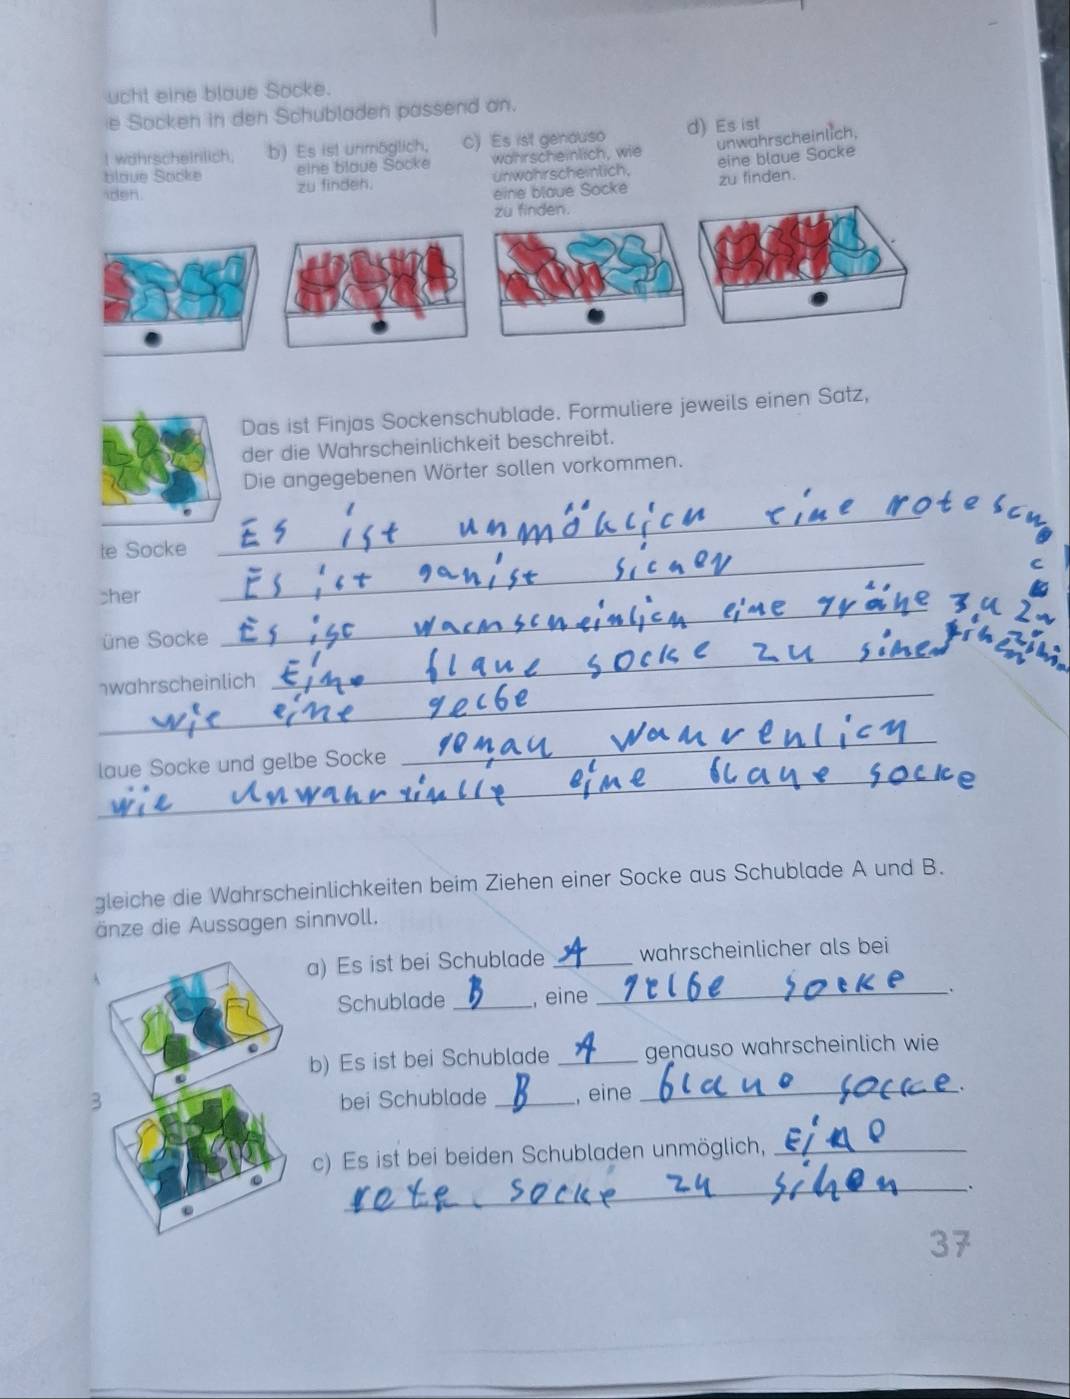 ucht eine blaue Socke.
e Socken in den Schubladen passend an.
wahrscheinlich,
blaue Socke
den.
b) Es ist unmöglich,
eine blaue Socke
zu finden.
c) Es ist genauso
wahrscheinlich, wie
unwahrscheinlich,
eine blaue Socke
zu finden.
d) Es ist
unwahrscheinlich,
eine blaue Socke
zu finden.
Das ist Finjas Sockenschublade. Formuliere jeweils einen Satz,
der die Wahrscheinlichkeit beschreibt.
Die angegebenen Wörter sollen vorkommen.
te Socke Es ist unmöklich eine rote
cher Es ist ganist sicher
üne Socke Es ist wachscheinlich eine gräne zu
nwahrscheinlich Eine blaue socke zu
wie eine gelbe
laue Socke und gelbe Socke genau wahrenlich
wie eine blaue socke
gleiche die Wahrscheinlichkeiten beim Ziehen einer Socke aus Schublade A und B.
änze die Aussagen sinnvoll.
a) Es ist bei Schublade A wahrscheinlicher als bei
Schublade B, eine gelbe socke.
b) Es ist bei Schublade A genauso wahrscheinlich wie
B
bei Schublade B, eine blaue socke.
c) Es ist bei beiden Schubladen unmöglich, Eine
rote socke zu sihen.
37